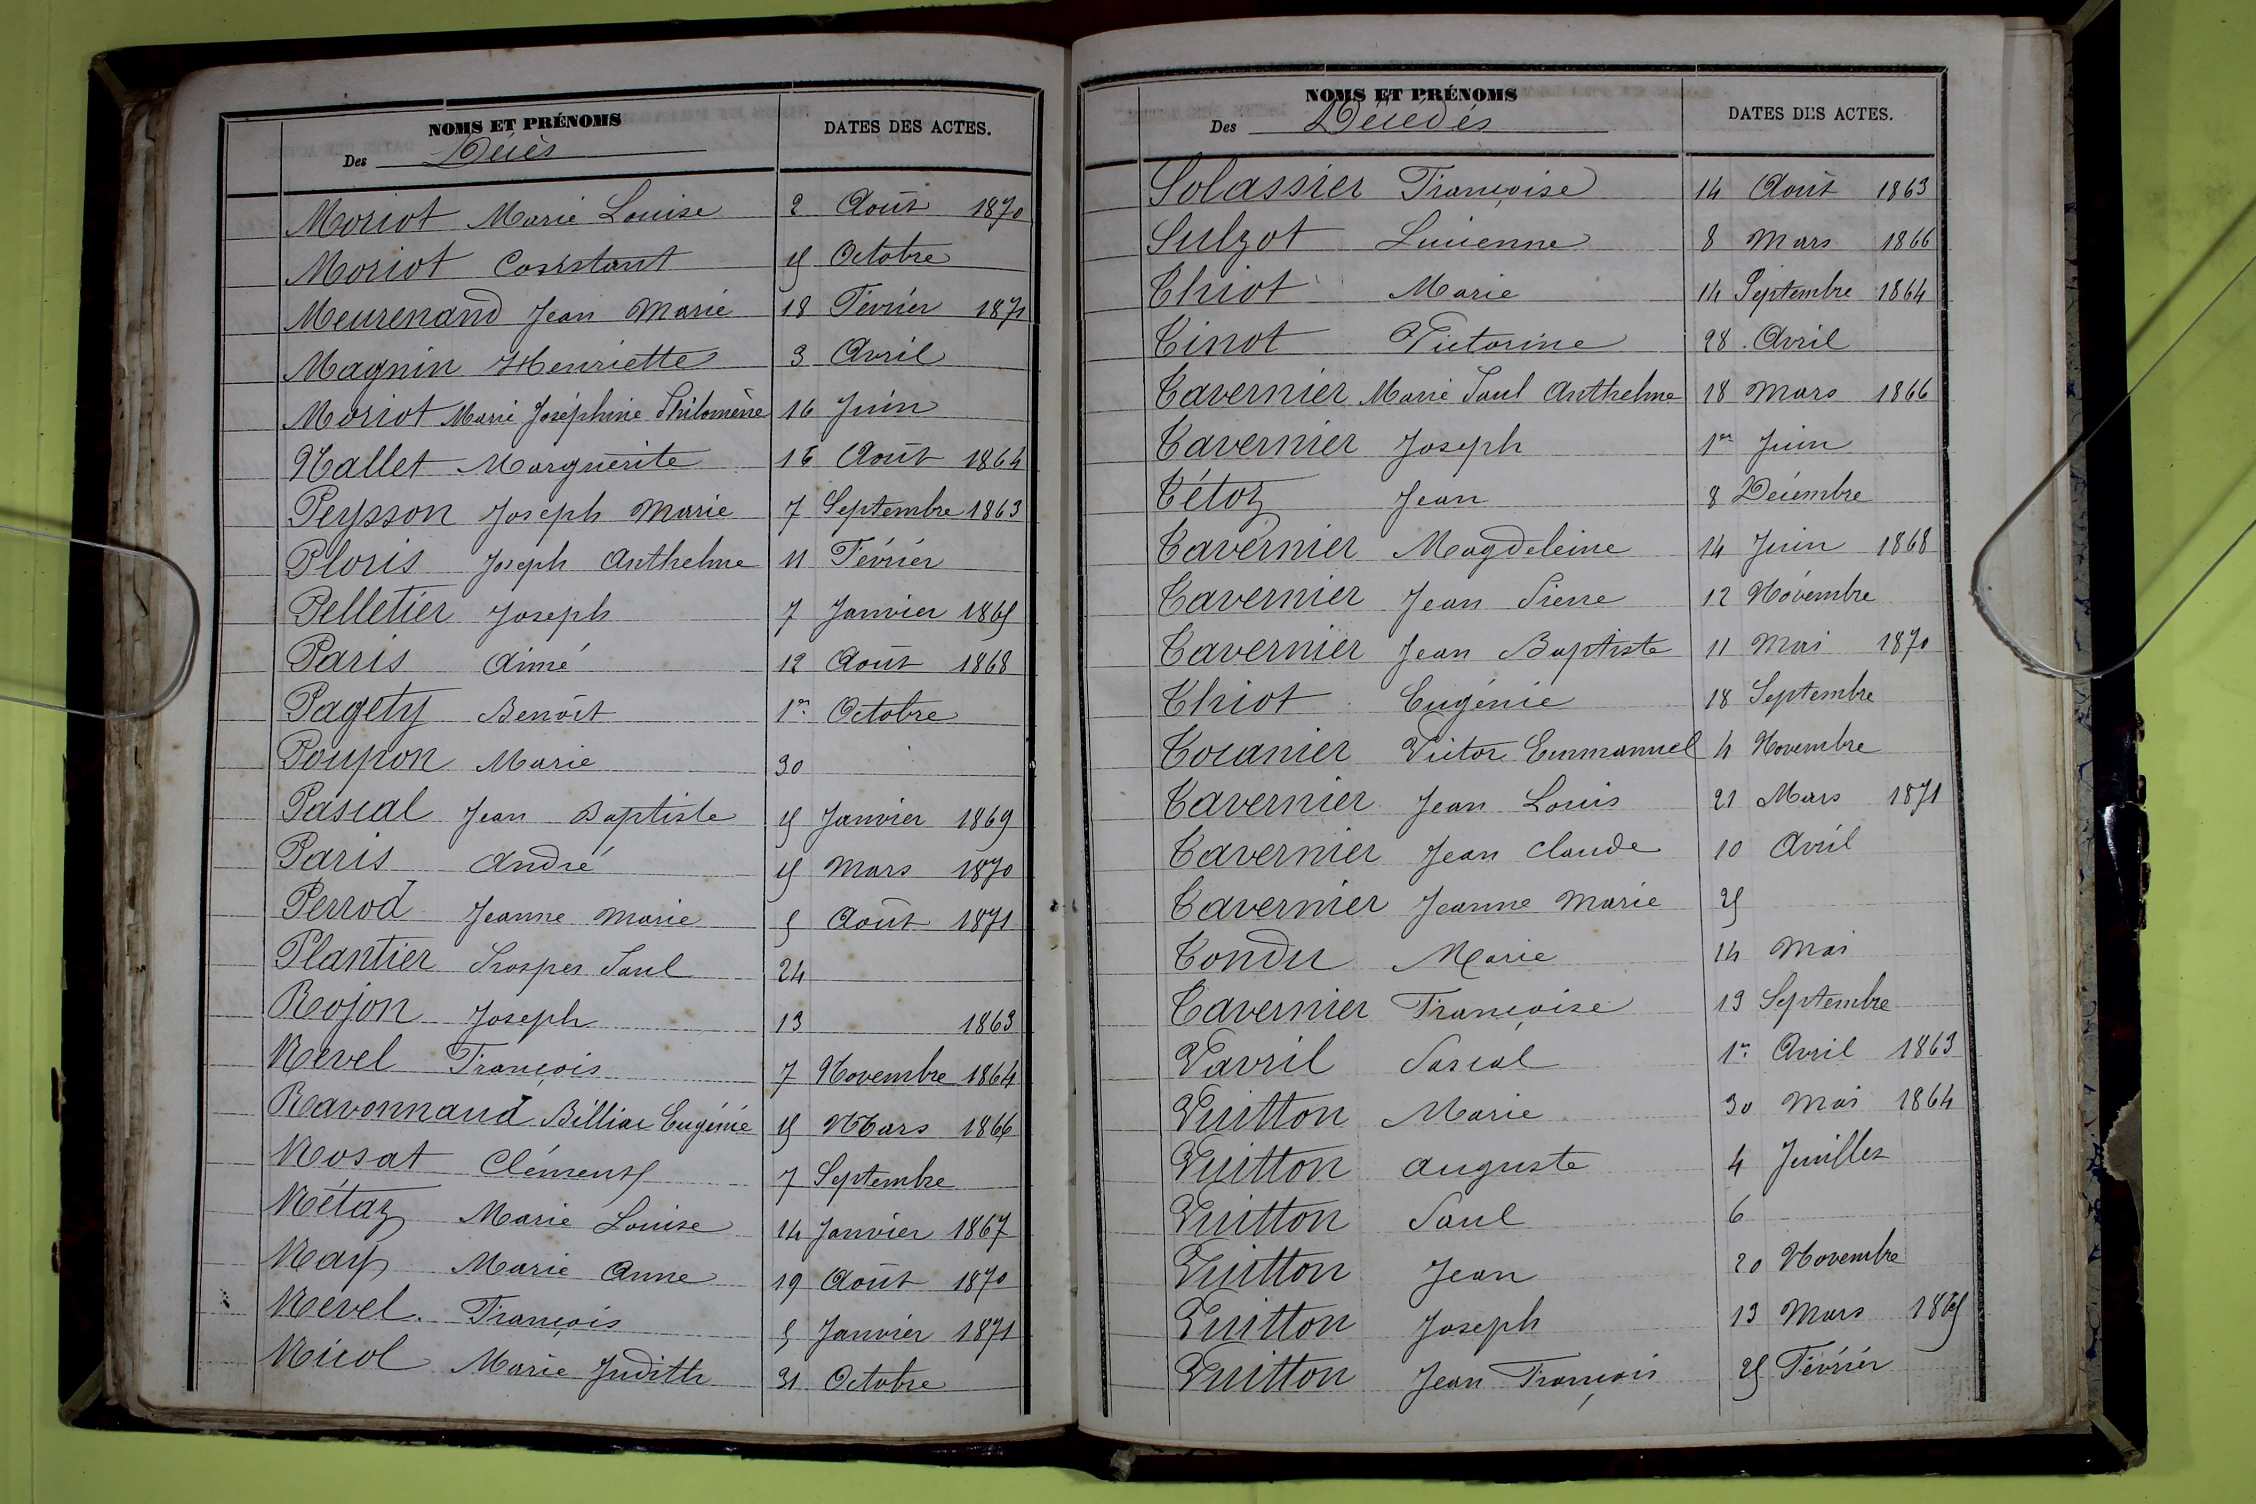 NOMS ET PRÉNOMS
DATES DES ACTES.
Des Décès
Moriot Marie Louise 2 Août 1870
Moriot Constant 15 Octobre
Meurenand Jean Marie 18 Février 1871
Magnin Henriette 3 Avril
Moriot Marie Joséphine Philomène 16 Juin
Nallet Marguerite 16 Août 1864
Peysson Joseph Marie 7 Septembre 1863
Ploris Joseph Anthelme 11 Février
Pelletier Joseph 7 Janvier 1865
Paris Aimé 12 Août 1868
Pagety Benoît 1er Octobre
Poupon Marie 30
Pascal Jean Baptiste 15 Janvier 1869
Paris André 15 Mars 1870
Perrod Jeanne Marie 5 Août 1871
Plantier Prosper Paul 24
Rojon Joseph 13 1863
Revel François 7 Novembre 1864
Ravonnaud Billiac Eugénie 15 Mars 1866
Rosat Clément 7 Septembre
Rétaz Marie Louise 14 Janvier 1867
Ray Marie Anne 19 Août 1870
Revel François 5 Janvier 1871
Ricol Marie Judith 31 Octobre
NOMS ET PRÉNOMS
DATES DES ACTES.
Des Décédés
Solassier Françoise 14 Août 1863
Sulzot Lucienne 8 Mars 1866
Thiot Marie 14 Septembre 1864
Tinot Victorine 28 Avril
Tavernier Marie Paul Anthelme 18 Mars 1866
Tavernier Joseph 1er Juin
Tétoz Jean 8 Décembre
Tavernier Magdeleine 14 Juin 1868
Tavernier Jean Pierre 12 Novembre
Tavernier Jean Baptiste 11 Mai 1870
Thiot Eugénie 18 Septembre
Tocanier Victor Emmanuel 4 Novembre
Tavernier Jean Louis 21 Mars 1871
Tavernier Jean Claude 10 Avril
Tavernier Jeanne Marie 25
Tondu Marie 14 Mai
Tavernier Françoise 13 Septembre
Vavril Pascal 1er Avril 1863
Vuitton Marie 30 Mai 1864
Vuitton Auguste 4 Juillet
Vuitton Paul 6
Vuitton Jean 20 Novembre
Vuitton Joseph 13 Mars 1865
Vuitton Jean François 25 Février